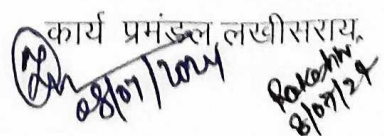 कार्य प्रमंडल लखीसराय,
08/07/2024
Rakesh
8/07/24